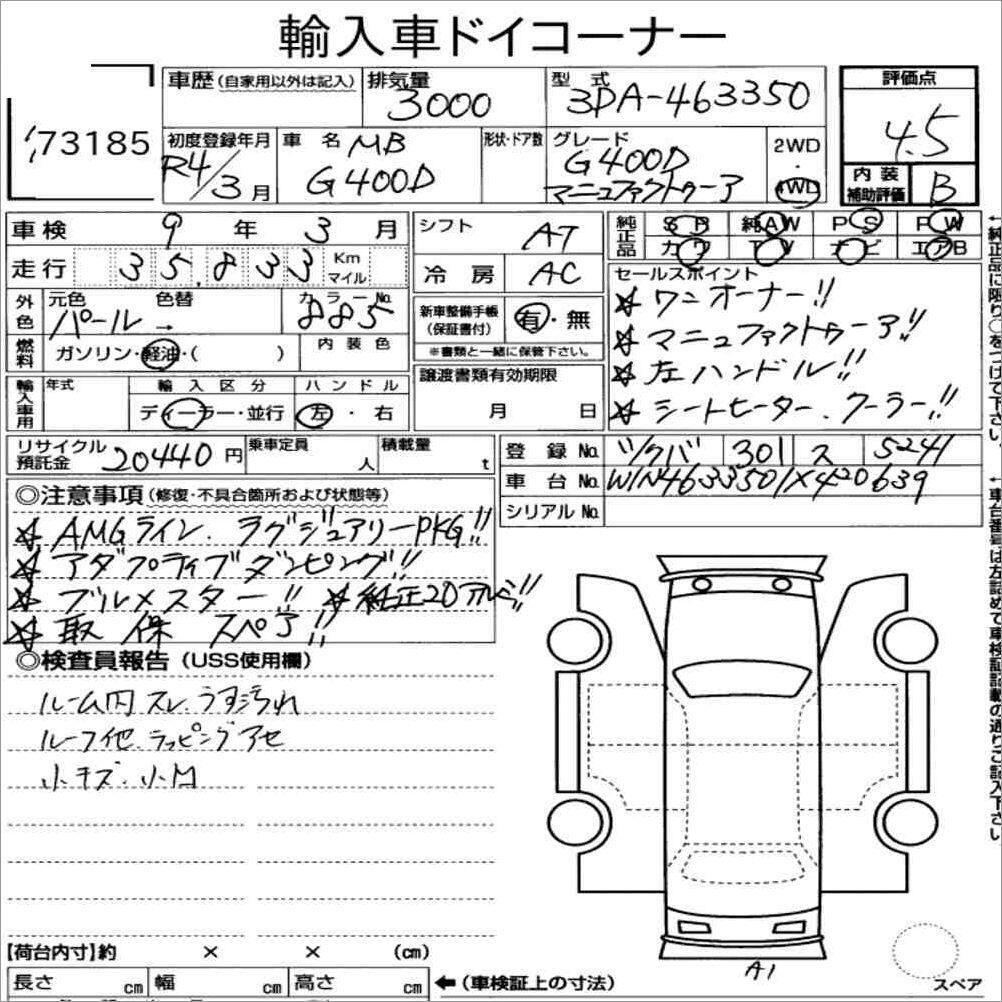 輸入車ドイコーナー
73185
車歴 (自家用以外は記入)
排気量 3000
型式 3DA-463350
評価点 4.5
初度登録年月 R4/3月
車名 MB G400D
形状・ドア数
グレード G400D マニュファクトゥーア
2WD
4WD
内装補助評価 B
車検 9年 3月
シフト AT
純正品 SR 純AW PS PW
カワ TV ナビ エアB
走行 35,833 Km マイル
冷房 AC
セールスポイント
☆ワンオーナー!!
☆マニュファクトゥーア!!
☆左ハンドル!!
☆シートヒーター、クーラー!!
外色 元色 パール→ 色替 カラーNo. 885
新車整備手帳 (保証書付) 有・無
※書類と一緒に保管下さい。
燃料 ガソリン・軽油・( )
内装色
譲渡書類有効期限
月 日
輸入車用 年式 輸入区分 ハンドル
ディーラー・並行 左・右
リサイクル預託金 20440円
乗車定員 人
積載量 t
登録No. ツクバ 301 ス 5241
車台No. W1N4633501X420639
シリアルNo.
◎注意事項 (修復・不具合箇所および状態等)
☆AMGライン、ラグジュアリーPKG!!
☆アダプティブダンピング!!
☆ブルメスター!! ☆純正20アルミ!!
☆取 保 スペア!!
◎検査員報告 (USS使用欄)
ルーム内スレ、うす汚れ
ルーフ他ラッピングアセ
小キズ、小凹
A1
スペア
【荷台内寸】約 × × (cm)
長さ cm 幅 cm 高さ cm
←(車検証上の寸法)
←純正品に限り○をつけて下さい
←車台番号は左詰めで車検証記載の通りご記入下さい